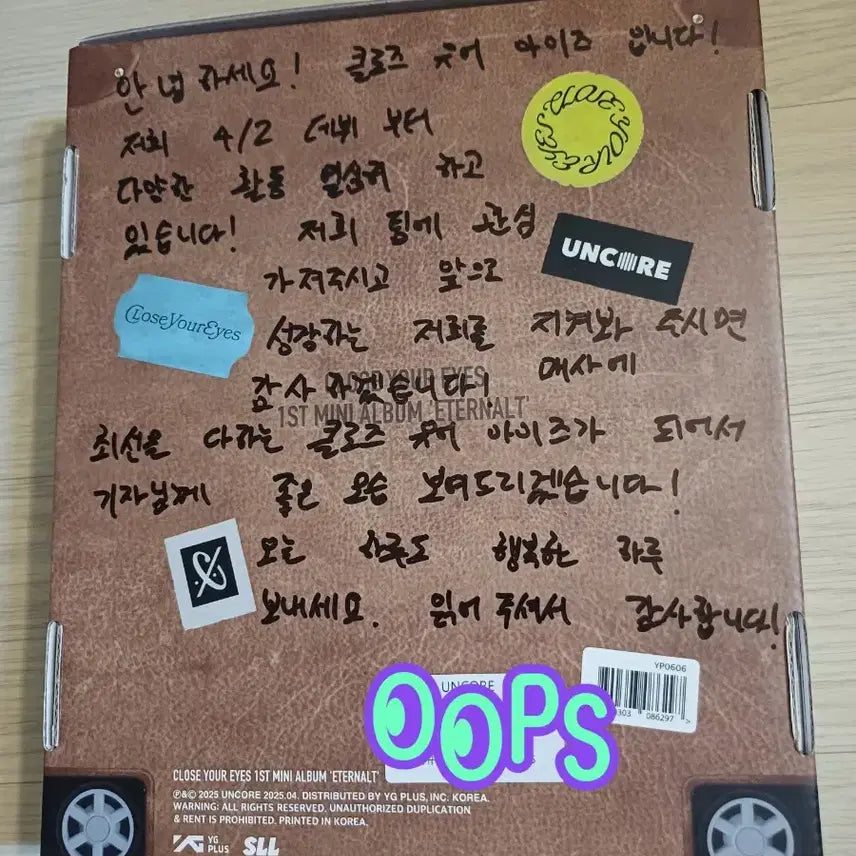 안녕하세요! 클로즈 유어 아이즈 입니다!
저희 4/2 데뷔 부터
다양한 활동 열심히 하고
있습니다! 저희 팀에 관심
가져주시고 앞으로
성장하는 저희를 지켜봐 주시면
감사 하겠습니다! 매사에
최선을 다하는 클로즈 유어 아이즈가 되어서
기자님께 좋은 모습 보여드리겠습니다!
오늘 하루도 행복한 하루
보내세요. 읽어 주셔서 감사합니다!
CLOSE YOUR EYES
UNCORE
CLoseYourEyes
CLOSE YOUR EYES
1ST MINI ALBUM 'ETERNALT'
YP0606
086297 >
UNCORE
OOPS
CLOSE YOUR EYES 1ST MINI ALBUM 'ETERNALT'
℗&© 2025 UNCORE 2025.04. DISTRIBUTED BY YG PLUS, INC. KOREA.
WARNING: ALL RIGHTS RESERVED. UNAUTHORIZED DUPLICATION
& RENT IS PROHIBITED. PRINTED IN KOREA.
YG PLUS SLL